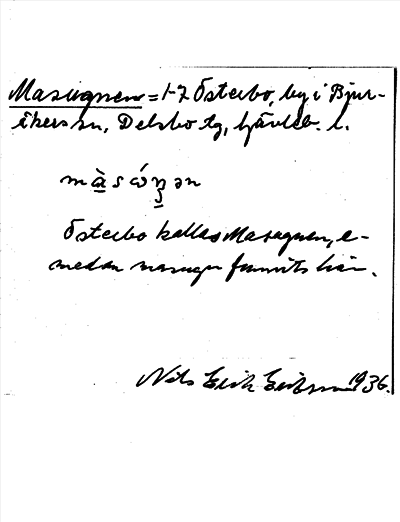 Masugnen = 1-7 Österbo, by i Bjur-
åkers sn, Delsbo tg, Gävleb. l.
mà̱sώŋ̱ən
Österbo kallas Masugnen, e-
medan masugn funnits här.
Nils Erik Eriksson 1936.